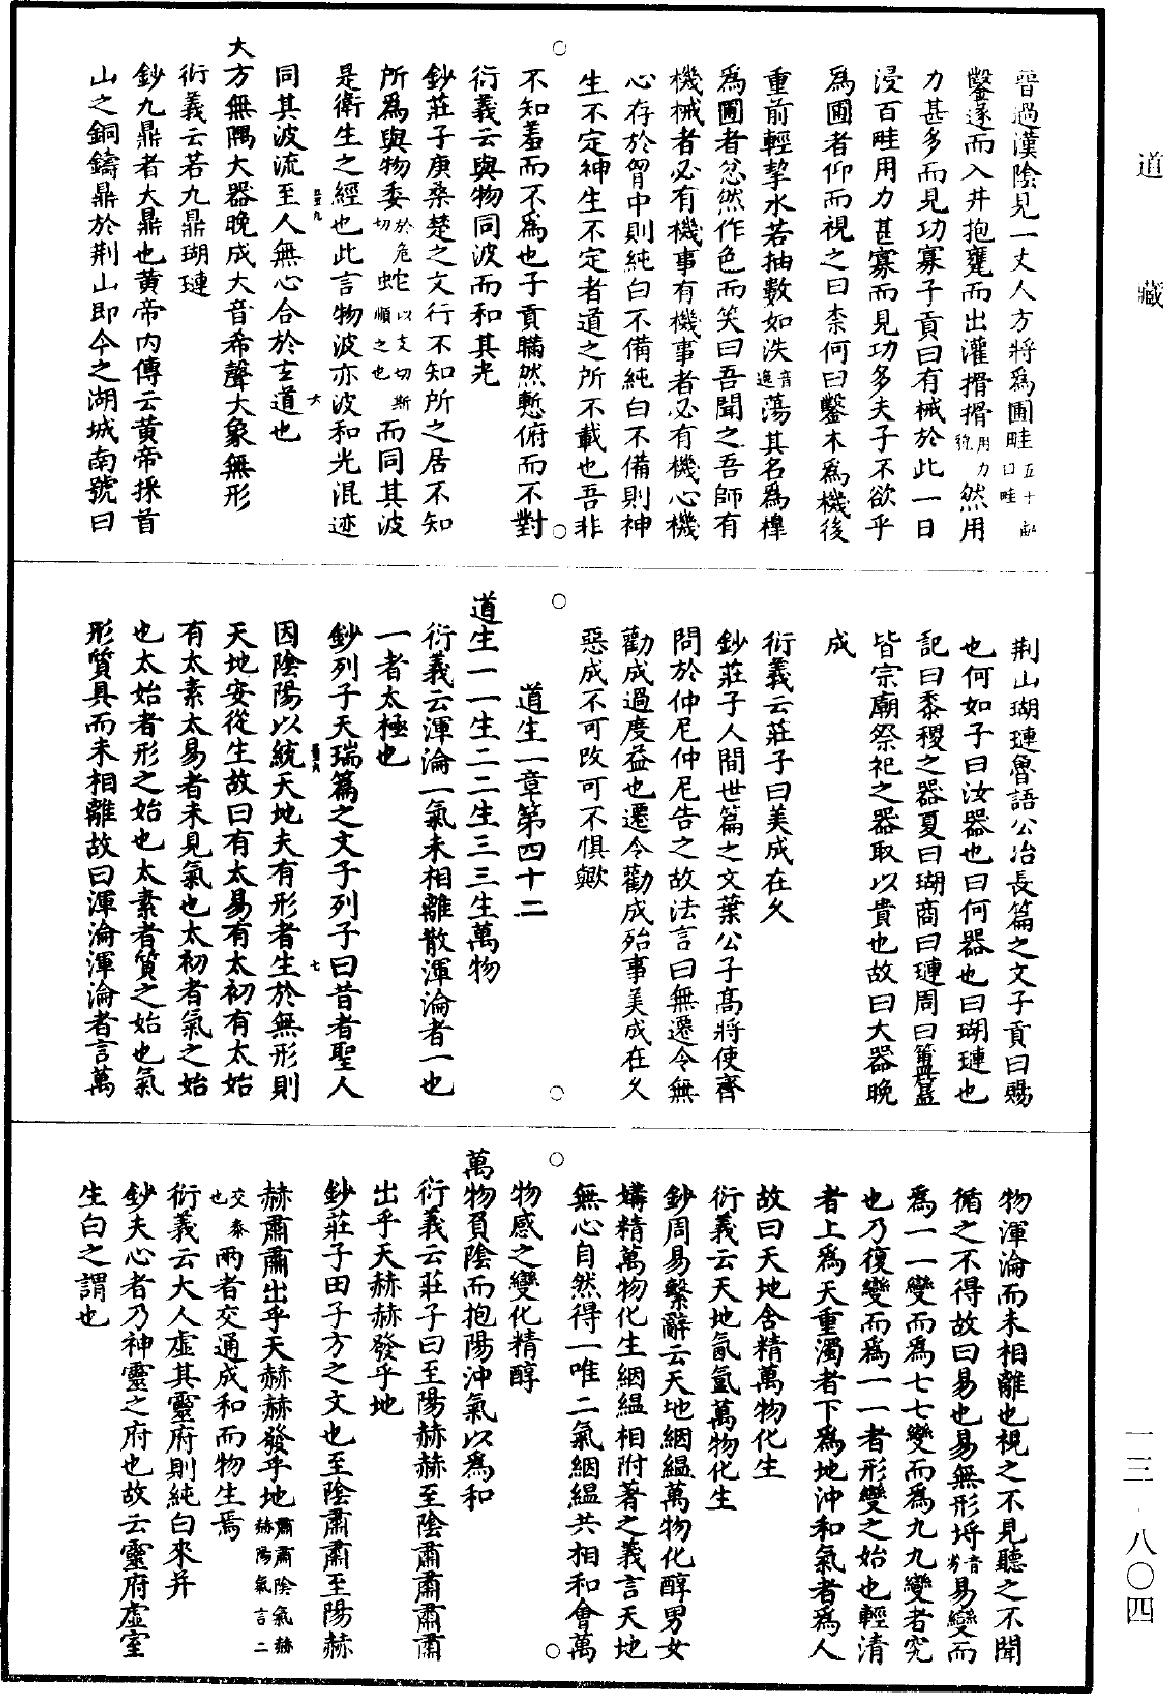 道藏
晉過漢陰見一丈人方將為圃畦五十畝曰畦
鑿遂而入井抱甕而出灌搰搰用力徐然用
力甚多而見功寡子貢曰有械於此一日
浸百畦用力甚寡而見功多夫子不欲乎
為圃者仰而視之曰柰何曰鑿木為機後
重前輕挈水若抽數如泆音逸蕩其名為橰
為圃者忿然作色而笑曰吾聞之吾師有
機械者必有機事有機事者必有機心機
心存於胷中則純白不備純白不備則神
生不定神生不定者道之所不載也吾非
不知羞而不為也子貢瞞然慙俯而不對
衍義云與物同波而和其光
鈔莊子庚桑楚之文行不知所之居不知
所為與物委於危切蛇以支切斯順之也而同其波
是衛生之經也此言物波亦波和光混迹
同其波流至人無心合於玄道也
大方無隅大器晚成大音希聲大象無形
衍義云若九鼎瑚璉
鈔九鼎者大鼎也黃帝內傳云黃帝採首
山之銅鑄鼎於荆山即今之湖城南號曰
荆山瑚璉魯語公冶長篇之文子貢曰賜
也何如子曰汝器也曰何器也曰瑚璉也
記曰黍稷之器夏曰瑚商曰璉周曰簠簋
皆宗廟祭祀之器取以貴也故曰大器晚
成
衍義云莊子曰美成在久
鈔莊子人間世篇之文葉公子高將使齊
問於仲尼仲尼告之故法言曰無遷令無
勸成過度益也遷令勸成殆事美成在久
惡成不可改可不懼歟
道生一章第四十二
道生一一生二二生三三生萬物
衍義云渾淪一氣未相離散渾淪者一也
一者太極也
鈔列子天瑞篇之文子列子曰昔者聖人
因陰陽以統天地夫有形者生於無形則
天地安從生故曰有太易有太初有太始
有太素太易者未見氣也太初者氣之始
也太始者形之始也太素者質之始也氣
形質具而未相離故曰渾淪渾淪者言萬
物渾淪而未相離也視之不見聽之不聞
循之不得故曰易也易無形埒音劣易變而
為一一變而為七七變而為九九變者究
也乃復變而為一一者形變之始也輕清
者上為天重濁者下為地沖和氣者為人
故曰天地含精萬物化生
衍義云天地氤氳萬物化生
鈔周易繫辭云天地絪緼萬物化醇男女
媾精萬物化生絪緼相附著之義言天地
無心自然得一唯二氣絪緼共相和會萬
物感之變化精醇
萬物負陰而抱陽沖氣以為和
衍義云莊子曰至陽赫赫至陰肅肅肅肅
出乎天赫赫發乎地
鈔莊子田子方之文也至陰肅肅至陽赫
赫肅肅出乎天赫赫發乎地肅肅陰氣赫赫陽氣言二
交泰也兩者交通成和而物生焉
衍義云大人虛其靈府則純白來并
鈔夫心者乃神靈之府也故云靈府虛室
生白之謂也
一三·八〇四